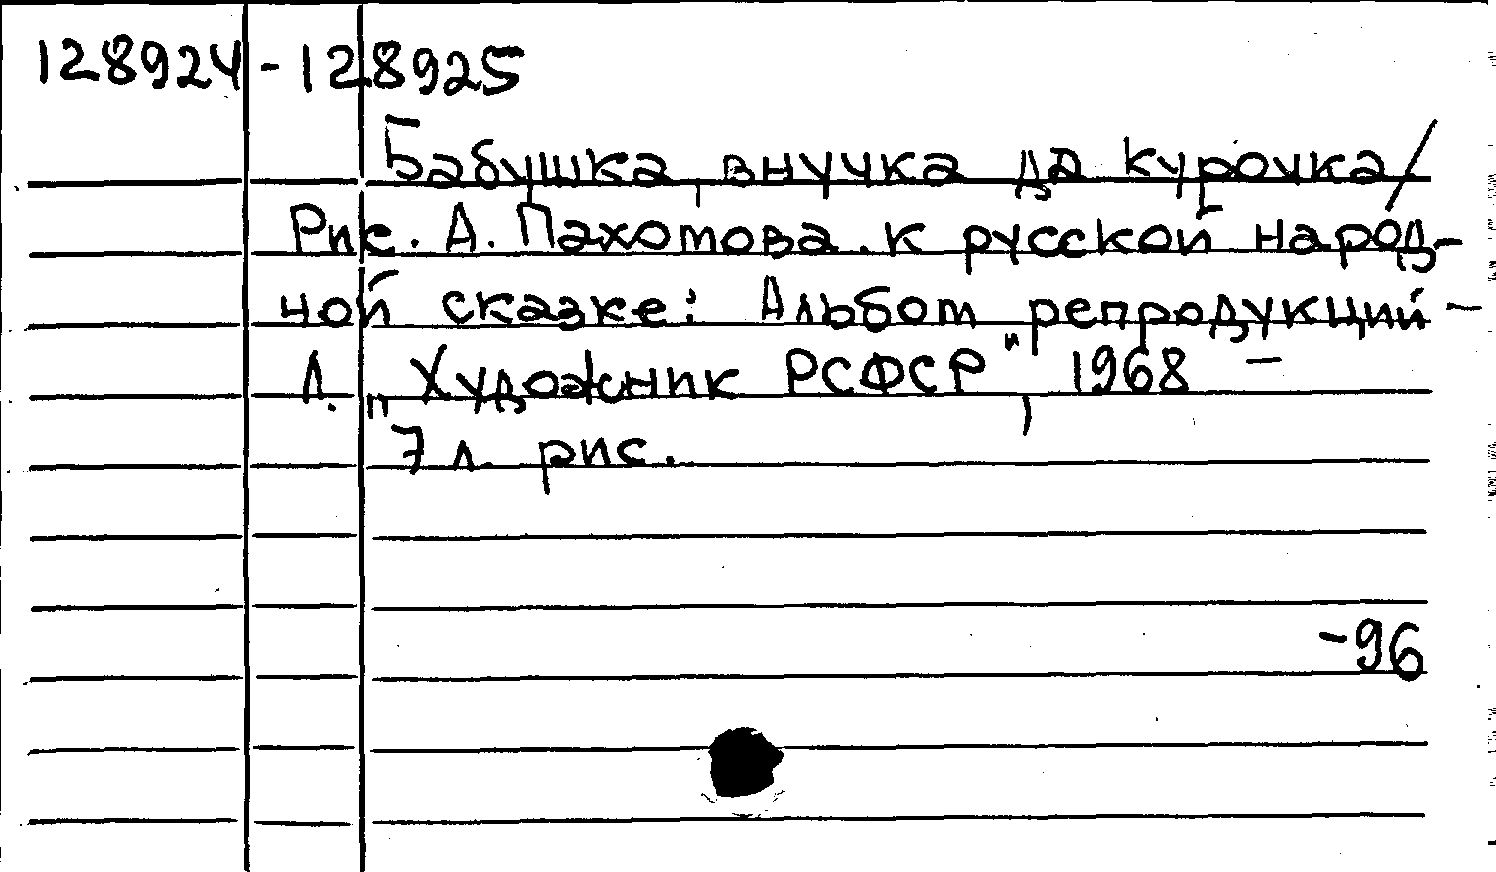 128924-128925
Бабушка, внучка да курочка/
Рис. А. Пахомова. к русской народ-
ной сказке: Альбом репродукций -
Л. "Художник РСФСР", 1968 -
7 л. рис.
-96